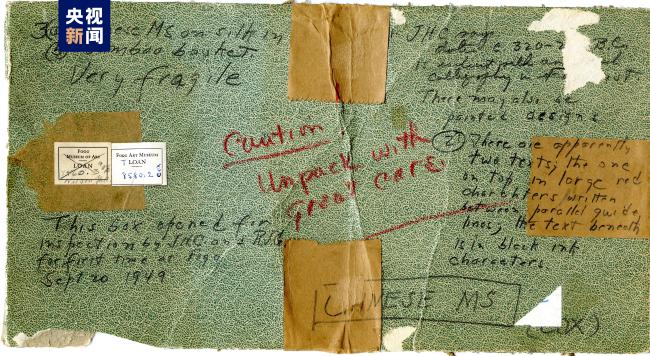 央视
新闻
MS on silk in
basket
Very fragile
FOGG
MUSEUM OF ART
LOAN
FOGG ART MUSEUM
T LOAN
8580.2
This box opened for
inspection by JHC and
for first time at Fogg
Sept 20 1949
Caution!
Unpack with
great care.
JHC says
date c 320-
There may also be
painted designs
② There are apparently
two texts; the one
on top in large red
characters written
between parallel guide
lines; the text beneath
is in black ink
characters.
CHINESE MS
(COX)